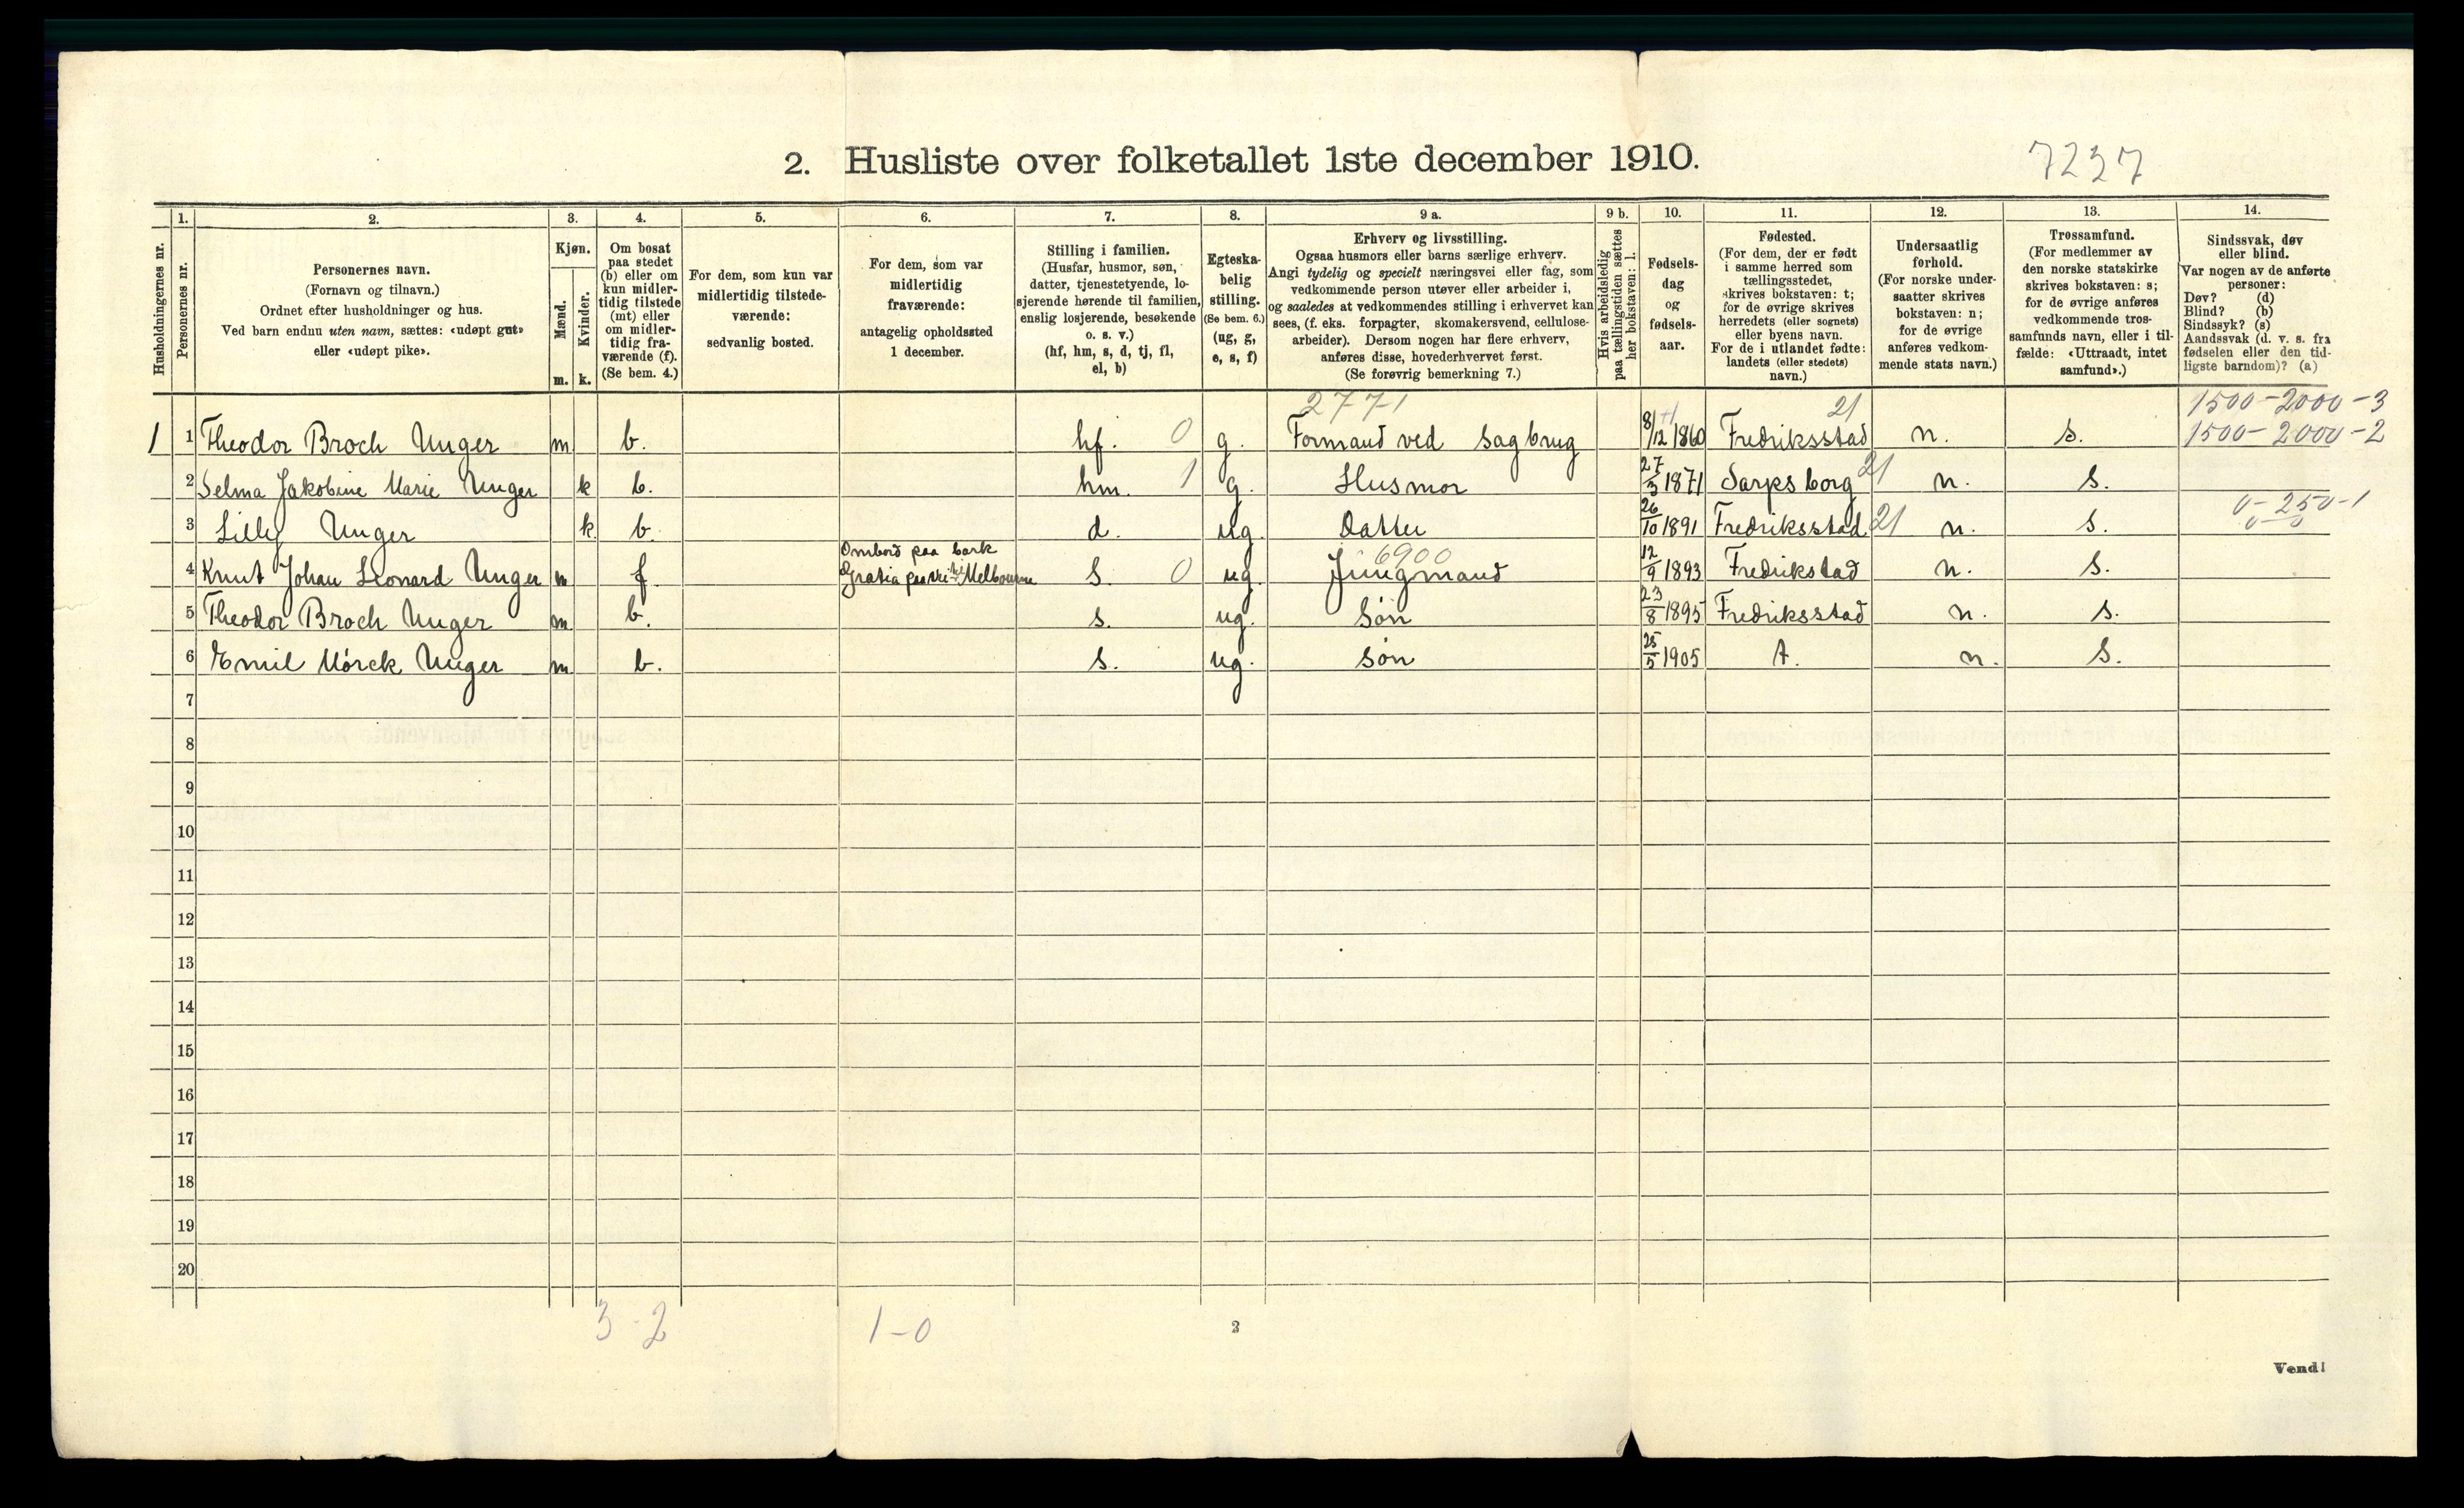 2. Husliste over folketallet 1ste december 1910.
7237
Husholdningernes nr.
1.
Personernes nr.
2.
Personernes navn.
(Fornavn og tilnavn.)
Ordnet efter husholdninger og hus.
Ved barn endnu uten navn, sættes: «udøpt gut»
eller «udøpt pike».
3.
Kjøn.
Mænd.
Kvinder.
m. k.
4.
Om bosat
paa stedet
(b) eller om
kun midler-
tidig tilstede
(mt) eller
om midler-
tidig fra-
værende (f).
(Se bem. 4.)
5.
For dem, som kun var
midlertidig tilstede-
værende:
sedvanlig bosted.
6.
For dem, som var
midlertidig
fraværende:
antagelig opholdssted
1 december.
7.
Stilling i familien.
(Husfar, husmor, søn,
datter, tjenestetyende, lo-
sjerende hørende til familien,
enslig losjerende, besøkende
o. s. v.)
(hf, hm, s, d, tj, fl,
el, b)
8.
Egteska-
belig
stilling.
(Se bem. 6.)
(ug, g,
e, s, f)
9 a.
Erhverv og livsstilling.
Ogsaa husmors eller barns særlige erhverv.
Angi tydelig og specielt næringsvei eller fag, som
vedkommende person utøver eller arbeider i,
og saaledes at vedkommendes stilling i erhvervet kan
sees, (f. eks. forpagter, skomakersvend, cellulose-
arbeider). Dersom nogen har flere erhverv,
anføres disse, hovederhvervet først.
(Se forøvrig bemerkning 7.)
9 b.
Hvis arbeidsledig
paa tællingstiden sættes
her bokstaven: l.
10.
Fødsels-
dag
og
fødsels-
aar.
11.
Fødested.
(For dem, der er født
i samme herred som
tællingsstedet,
skrives bokstaven: t;
for de øvrige skrives
herredets (eller sognets)
eller byens navn.
For de i utlandet fødte:
landets (eller stedets)
navn.)
12.
Undersaatlig
forhold.
(For norske under-
saatter skrives
bokstaven: n;
for de øvrige
anføres vedkom-
mende stats navn.)
13.
Trossamfund.
(For medlemmer av
den norske statskirke
skrives bokstaven: s;
for de øvrige anføres
vedkommende tros-
samfunds navn, eller i til-
fælde: «Uttraadt, intet
samfund».)
14.
Sindssvak, døv
eller blind.
Var nogen av de anførte
personer:
Døv? (d)
Blind? (b)
Sindssyk? (s)
Aandssvak (d. v. s. fra
fødselen eller den tid-
ligste barndom)? (a)
2771 21 1500-2000-3
1 1 Theodor Broch Unger m b. hf. 0 g. Formand ved sagbrug 8/12 1860 Fredriksstad n. s. 1500-2000-2
2 Selma Jakobine Marie Unger k b. hm. 1 g. Husmor 27/3 1871 Sarpsborg 21 n. s.
0-250-1
3 Lilly Unger k b. d. ug. Datter 26/10 1891 Fredriksstad 21 n. s. 0-0
Ombord paa bark
6900
4 Knut Johan Leonard Unger m f. Melbourne s. 0 ug. Jungmand 12/9 1893 Fredrikstad n. s.
5 Theodor Broch Unger m b. s. ug. Søn 23/8 1895 Fredriksstad n. s.
6 Emil Mørck Unger m b. s. ug. Søn 25/5 1905 t. n. s.
7
8
9
10
11
12
13
14
15
16
17
18
19
20
3-2 1-0
2
Vend!